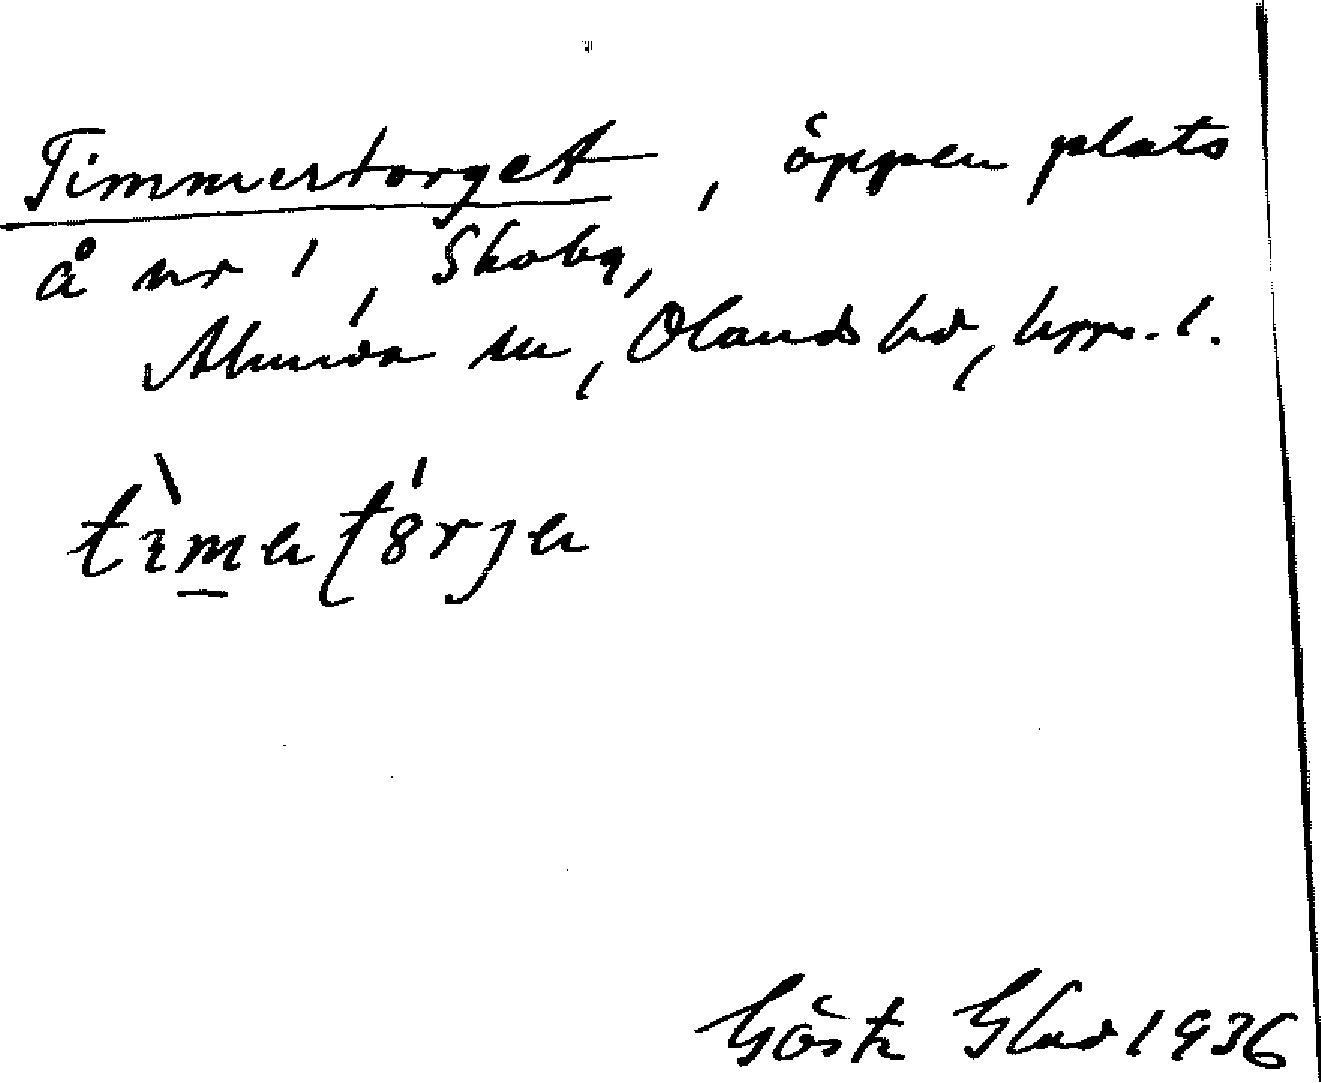 Timmertorget, öppen plats
å nr 1, Skoby,
Alunda sn, Olands hd, Upps. l.
Gösta Glad 1936